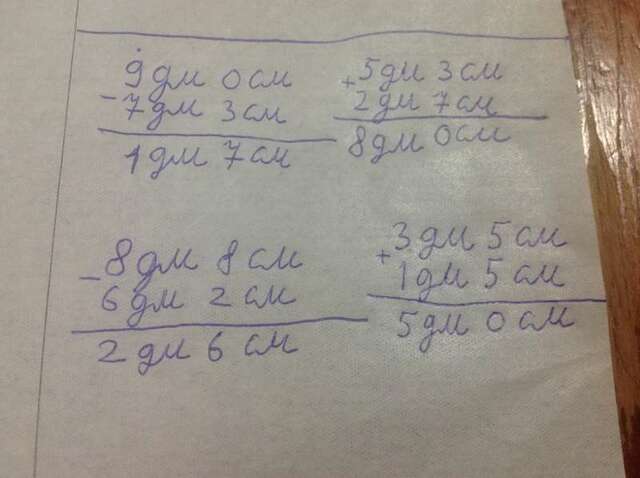 9 дм 0 см
- 7 дм 3 см
1 дм 7 см
5 дм 3 см
+ 2 дм 7 см
8 дм 0 см
8 дм 8 см
- 6 дм 2 см
2 дм 6 см
3 дм 5 см
+ 1 дм 5 см
5 дм 0 см